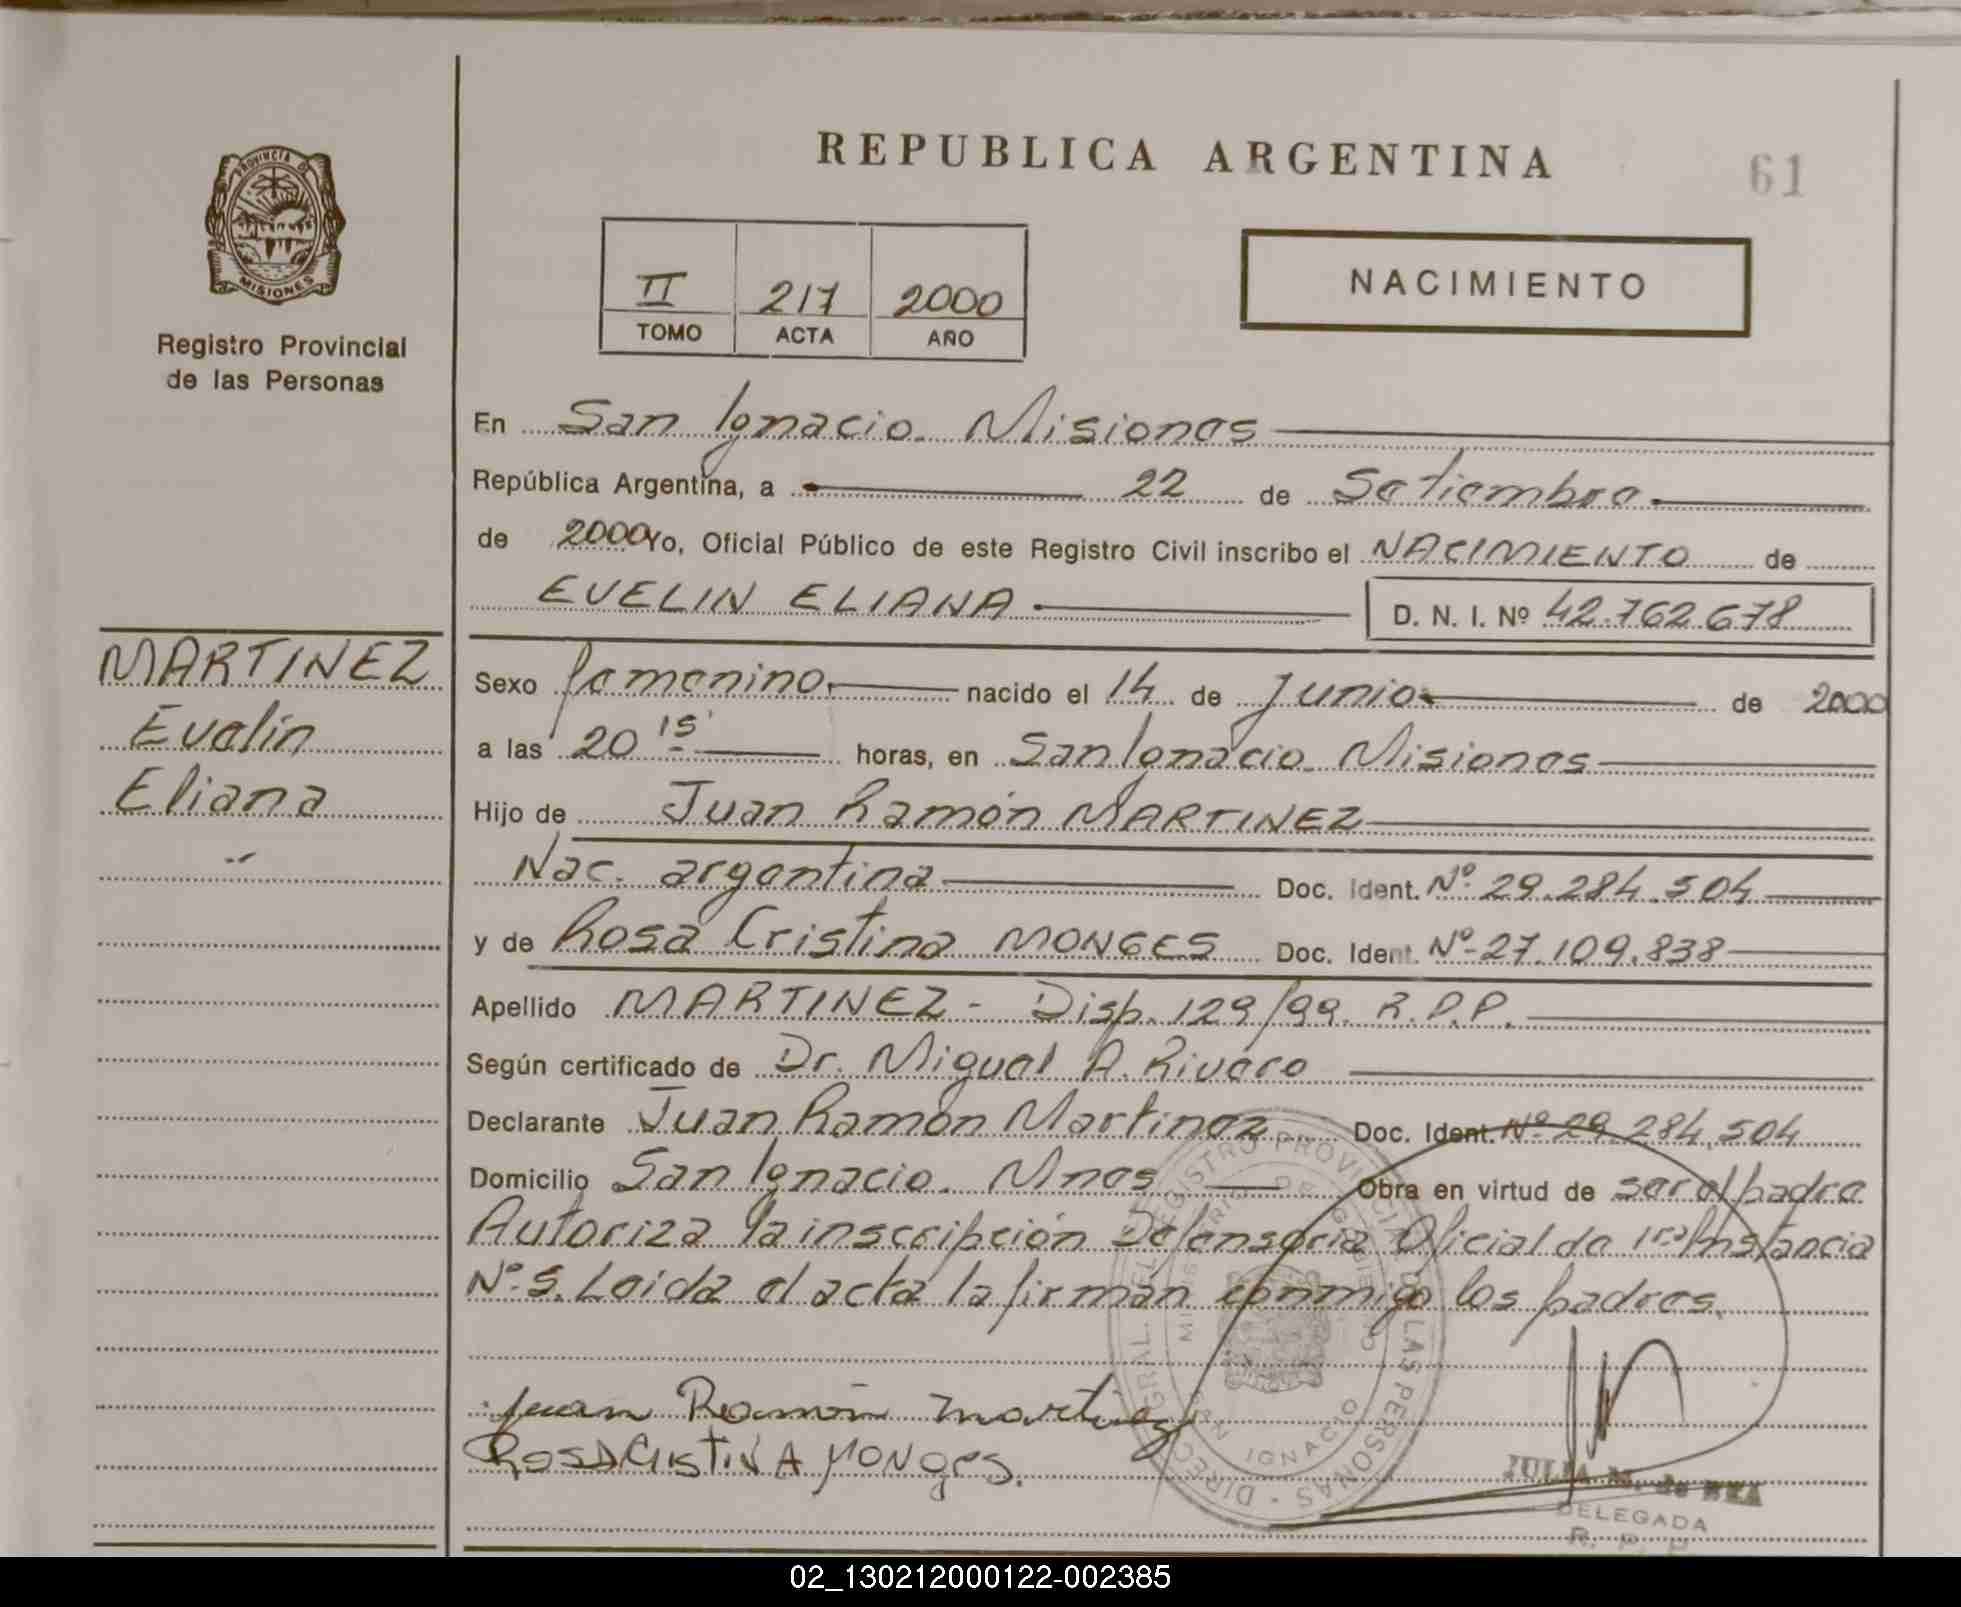 REPUBLICA ARGENTINA
61
PROVINCIA DE
MISIONES
Registro Provincial
de las Personas
II 217 2000
TOMO ACTA AÑO
NACIMIENTO
En San Ignacio. Misiones
República Argentina, a 22 de Setiembre.
de 2000 Yo, Oficial Público de este Registro Civil inscribo el NACIMIENTO de
EVELIN ELIANA. D. N. I. Nº 42.762.678
MARTINEZ
Evelin
Eliana
Sexo femenino. nacido el 14 de junio. de 2000
a las 20 15' horas, en San Ignacio. Misiones
Hijo de Juan Ramón MARTINEZ
Nac. argentina Doc. Ident. Nº 29.284.504
y de Rosa Cristina MONGES Doc. Ident. Nº 27.109.838
Apellido MARTINEZ - Disp. 129/99. R.P.P.
Según certificado de Dr. Miguel A. Rivero
Declarante Juan Ramón Martinez Doc. Ident. Nº 29.284.504
Domicilio San Ignacio. Mnes Obra en virtud de ser el padre
Autoriza la inscripción Defensoria Oficial de 1ra Instancia
Nº 5. Leida el acta la firman conmigo los padres.
Juan Ramón Martinez
Rosa Cristina Monges.
DIREC. GRAL. DEL REGISTRO PROVINCIAL DE LAS PERSONAS
MINISTERIO DE GOBIERNO
IGNACIO
JULIA M. de REA
DELEGADA
R. P. P.
02_130212000122-002385